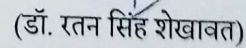 (डॉ. रतन सिंह शेखावत)